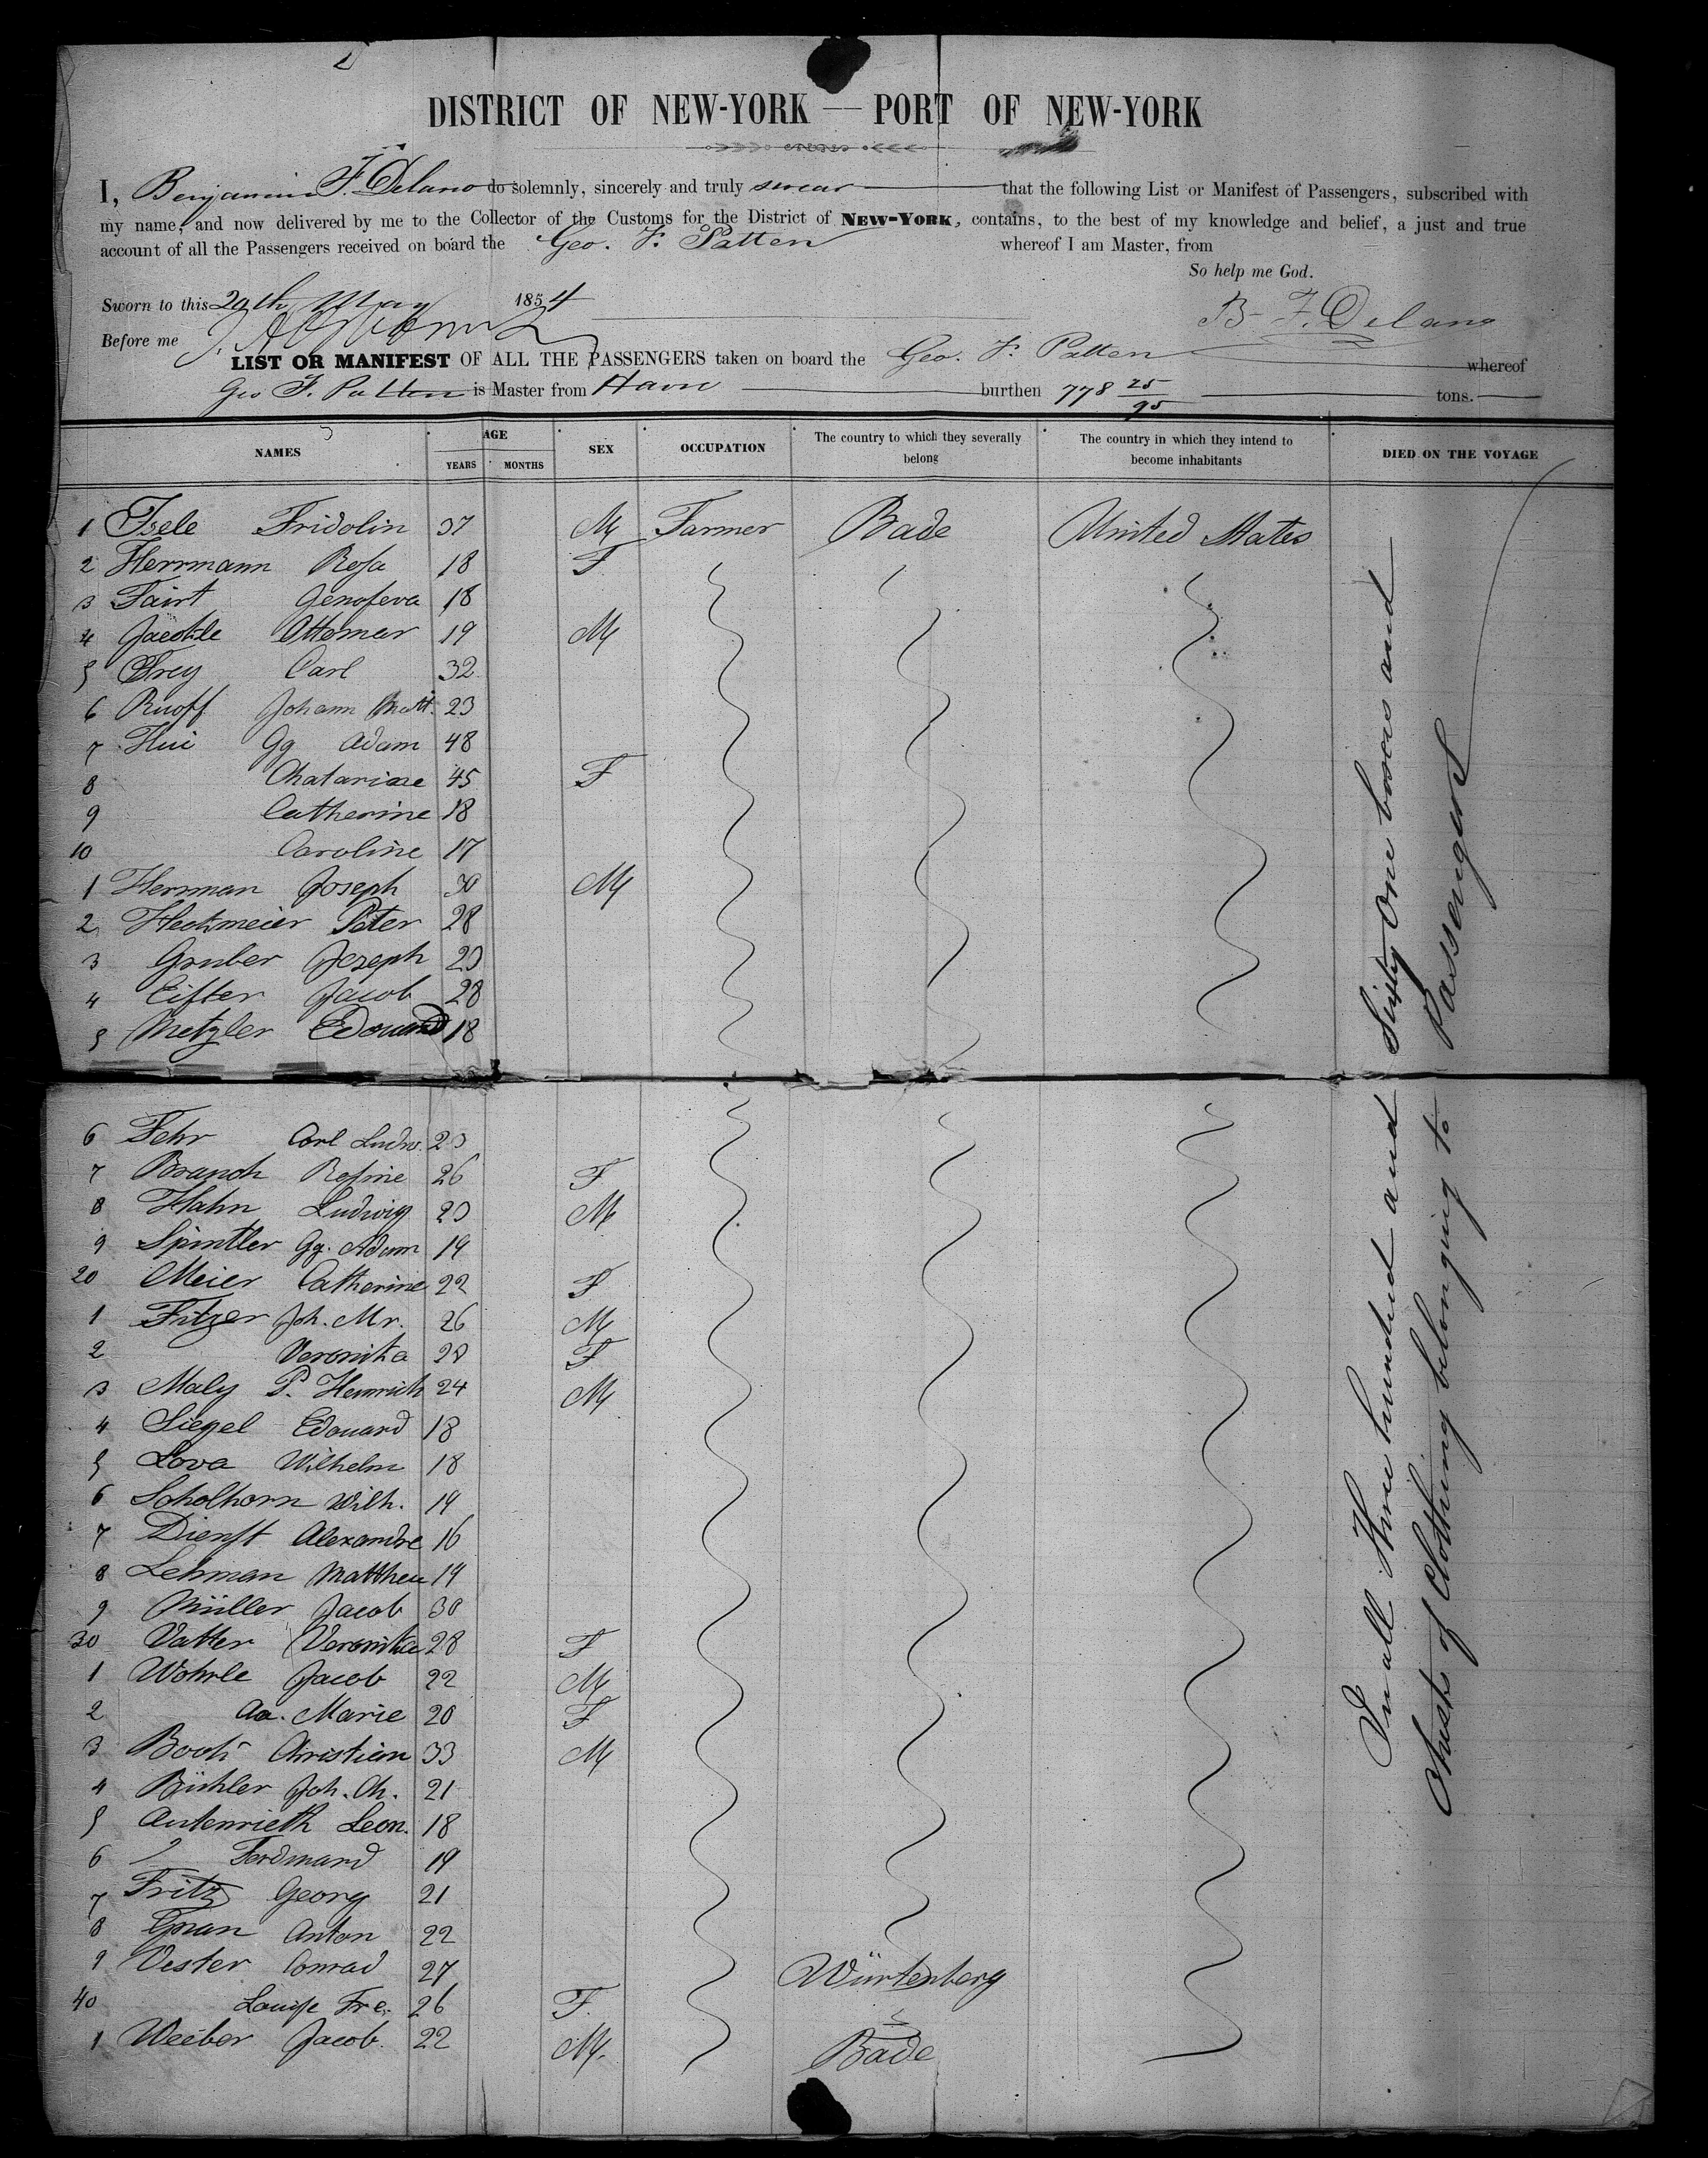 DISTRICT OF NEW-YORK — PORT OF NEW-YORK
I, Benjamin F. Delano do solemnly, sincerely and truly swear that the following List or Manifest of Passengers, subscribed with
my name, and now delivered by me to the Collector of the Customs for the District of NEW-YORK, contains, to the best of my knowledge and belief, a just and true
account of all the Passengers received on board the Geo. F. Patten whereof I am Master, from
So help me God.
Sworn to this 29th May 1854
B. F. Delano
Before me
LIST OR MANIFEST OF ALL THE PASSENGERS taken on board the Geo. F. Patten whereof
Geo F. Patten is Master from Havre burthen 778 25/95 tons.
NAMES AGE YEARS MONTHS SEX OCCUPATION The country to which they severally belong The country in which they intend to become inhabitants DIED ON THE VOYAGE
1 Isele Fridolin 37 M Farmer Bade United States
2 Herrmann Rosa 18 F
3 Faist Genofeva 18
4 Jaeckle Ottomar 19 M
5 Frey Carl 32
6 Ruoff Johann Matt. 23
7 Hui Gg Adam 48
8 Chatarine 45 F
9 Catherine 18
10 Caroline 17
1 Herrman Joseph 30 M
2 Heckmeier Peter 28
3 Gruber Joseph 23
4 Eifter Jacob 28
5 Metzler Edouard 18
6 Fehr Carl Ludw. 23
7 Branch Rosine 26 F
8 Hahn Ludwig 23 M
9 Spintler Gg. Adam 19
20 Meier Catherine 22 F
1 Fitzer Joh. Mr. 26 M
2 Veronika 28 F
3 Maly P. Heinrich 24 M
4 Siegel Edouard 18
5 Lova Wilhelm 18
6 Scholhorn Wilh. 19
7 Dienst Alexandre 16
8 Lehman Mattheu 19
9 Müller Jacob 30
30 Vatter Veronika 28 F
1 Wöhrle Jacob 22 M
2 Aa. Marie 20 F
3 Boch Christian 33 M
4 Bühler Joh. Ch. 21
5 Autenrieth Leon. 18
6 " Ferdinand 19
7 Fritz Georg 21
8 Anton 22
9 Vester Conrad 27 Würtenberg
40 Louise Fre. 26 F "
1 Weeber Jacob 22 M. Bade
In all three hundred and Sixty One boxes and
Chests of Clothing belonging to Passengers